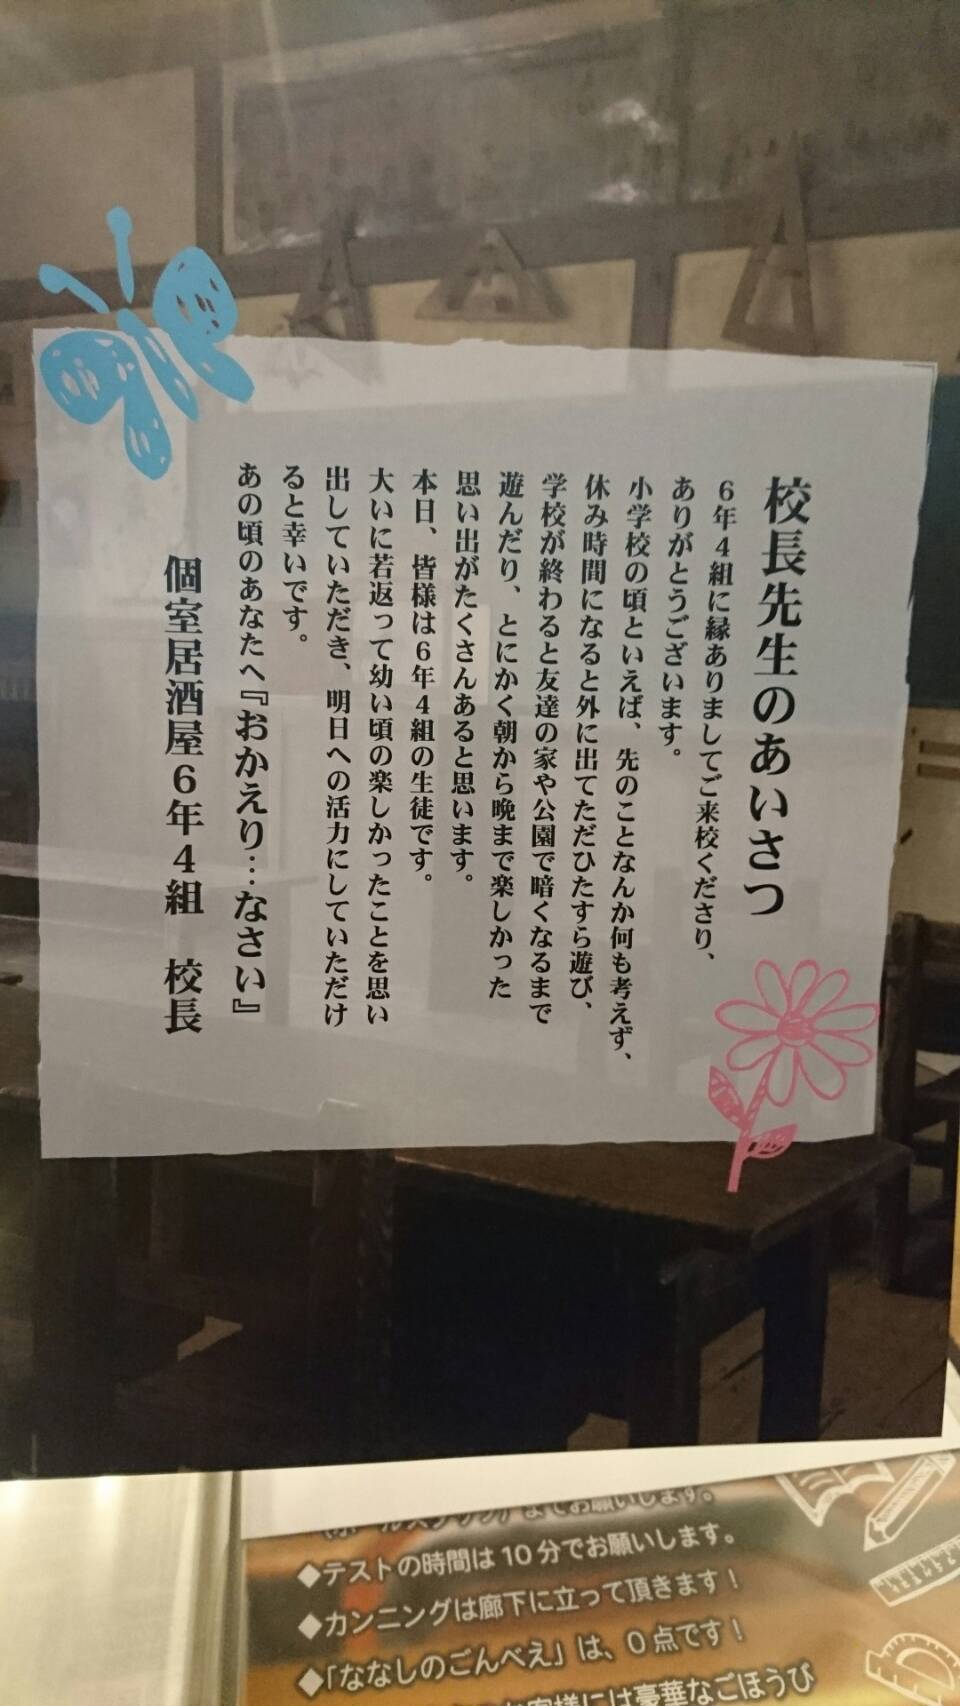 校長先生のあいさつ
6年4組に縁ありましてご来校くださり、
ありがとうございます。
小学校の頃といえば、先のことなんか何も考えず、
休み時間になると外に出てただひたすら遊び、
学校が終わると友達の家や公園で暗くなるまで
遊んだり、とにかく朝から晩まで楽しかった
思い出がたくさんあると思います。
本日、皆様は6年4組の生徒です。
大いに若返って幼い頃の楽しかったことを思い
出していただき、明日への活力にしていただけ
ると幸いです。
あの頃のあなたへ『おかえり…なさい』
個室居酒屋6年4組 校長
までお願いします。
◆テストの時間は10分でお願いします。
◆カンニングは廊下に立って頂きます！
◆「ななしのごんべえ」は、0点です！
客様には豪華なごほうび